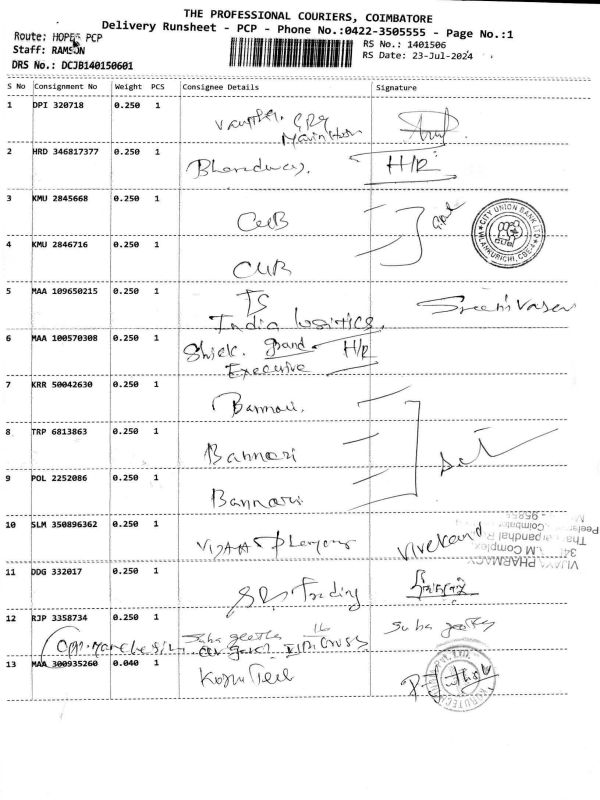 THE PROFESSIONAL COURIERS, COIMBATORE
Delivery Runsheet - PCP - Phone No.:0422-3505555 - Page No.:1
Route: HOPES PCP
RS No.: 1401506
Staff: RAMSON
RS Date: 23-Jul-2024
DRS No.: DCJB140150601
S No Consignment No Weight PCS Consignee Details Signature
1 DPI 320718 0.250 1
2 HRD 346817377 0.250 1 H/R
3 KMU 2845668 0.250 1 CUB
CITY UNION BANK LTD
VILANKURICHI, CBE-4
4 KMU 2846716 0.250 1 CUB
5 MAA 109650215 0.250 1 TS Sreenivasan
India logistics,
6 MAA 100570308 0.250 1 Grand H/R
Executive
7 KRR 50042630 0.250 1 Bannari.
8 TRP 6813863 0.250 1 Bannari
9 POL 2252086 0.250 1 Bannari
10 SLM 350896362 0.250 1 Vivekand
VIJAYA PHARMACY
11 DDG 332017 0.250 1 Trading
12 RJP 3358734 0.250 1 Suba geetha Suba geetha
13 MAA 300935260 0.040 1